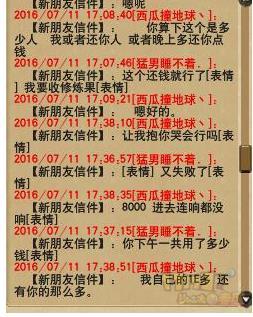 【新朋友信件】：嗯呢
2016/07/11 17:08:40[西瓜撞地球丶]：
【新朋友信件】： 你算下这个是多
少人 我或者还你人 或者晚上多还你点
钱
2016/07/11 17:07:46[猛男睡不着．]：
【新朋友信件】：这个还钱就行了[表情
] 我要收修炼果[表情]
2016/07/11 17:08:21[西瓜撞地球丶]：
【新朋友信件】： 嗯好的。
2016/07/11 17:38:19[西瓜撞地球丶]：
【新朋友信件】：让我抱你哭会行吗[表
情]
2016/07/11 17:36:57[猛男睡不着．]：
【新朋友信件】：[表情] 又失败了[表
情]
2016/07/11 17:38:35[西瓜撞地球丶]：
【新朋友信件】：8000 进去连响都没
响[表情]
2016/07/11 17:37:15[猛男睡不着．]：
【新朋友信件】：你下午一共用了多少
钱[表情]
2016/07/11 17:38:51[西瓜撞地球丶]：
【新朋友信件】： 我自己的1E多 还
有你的那么多。